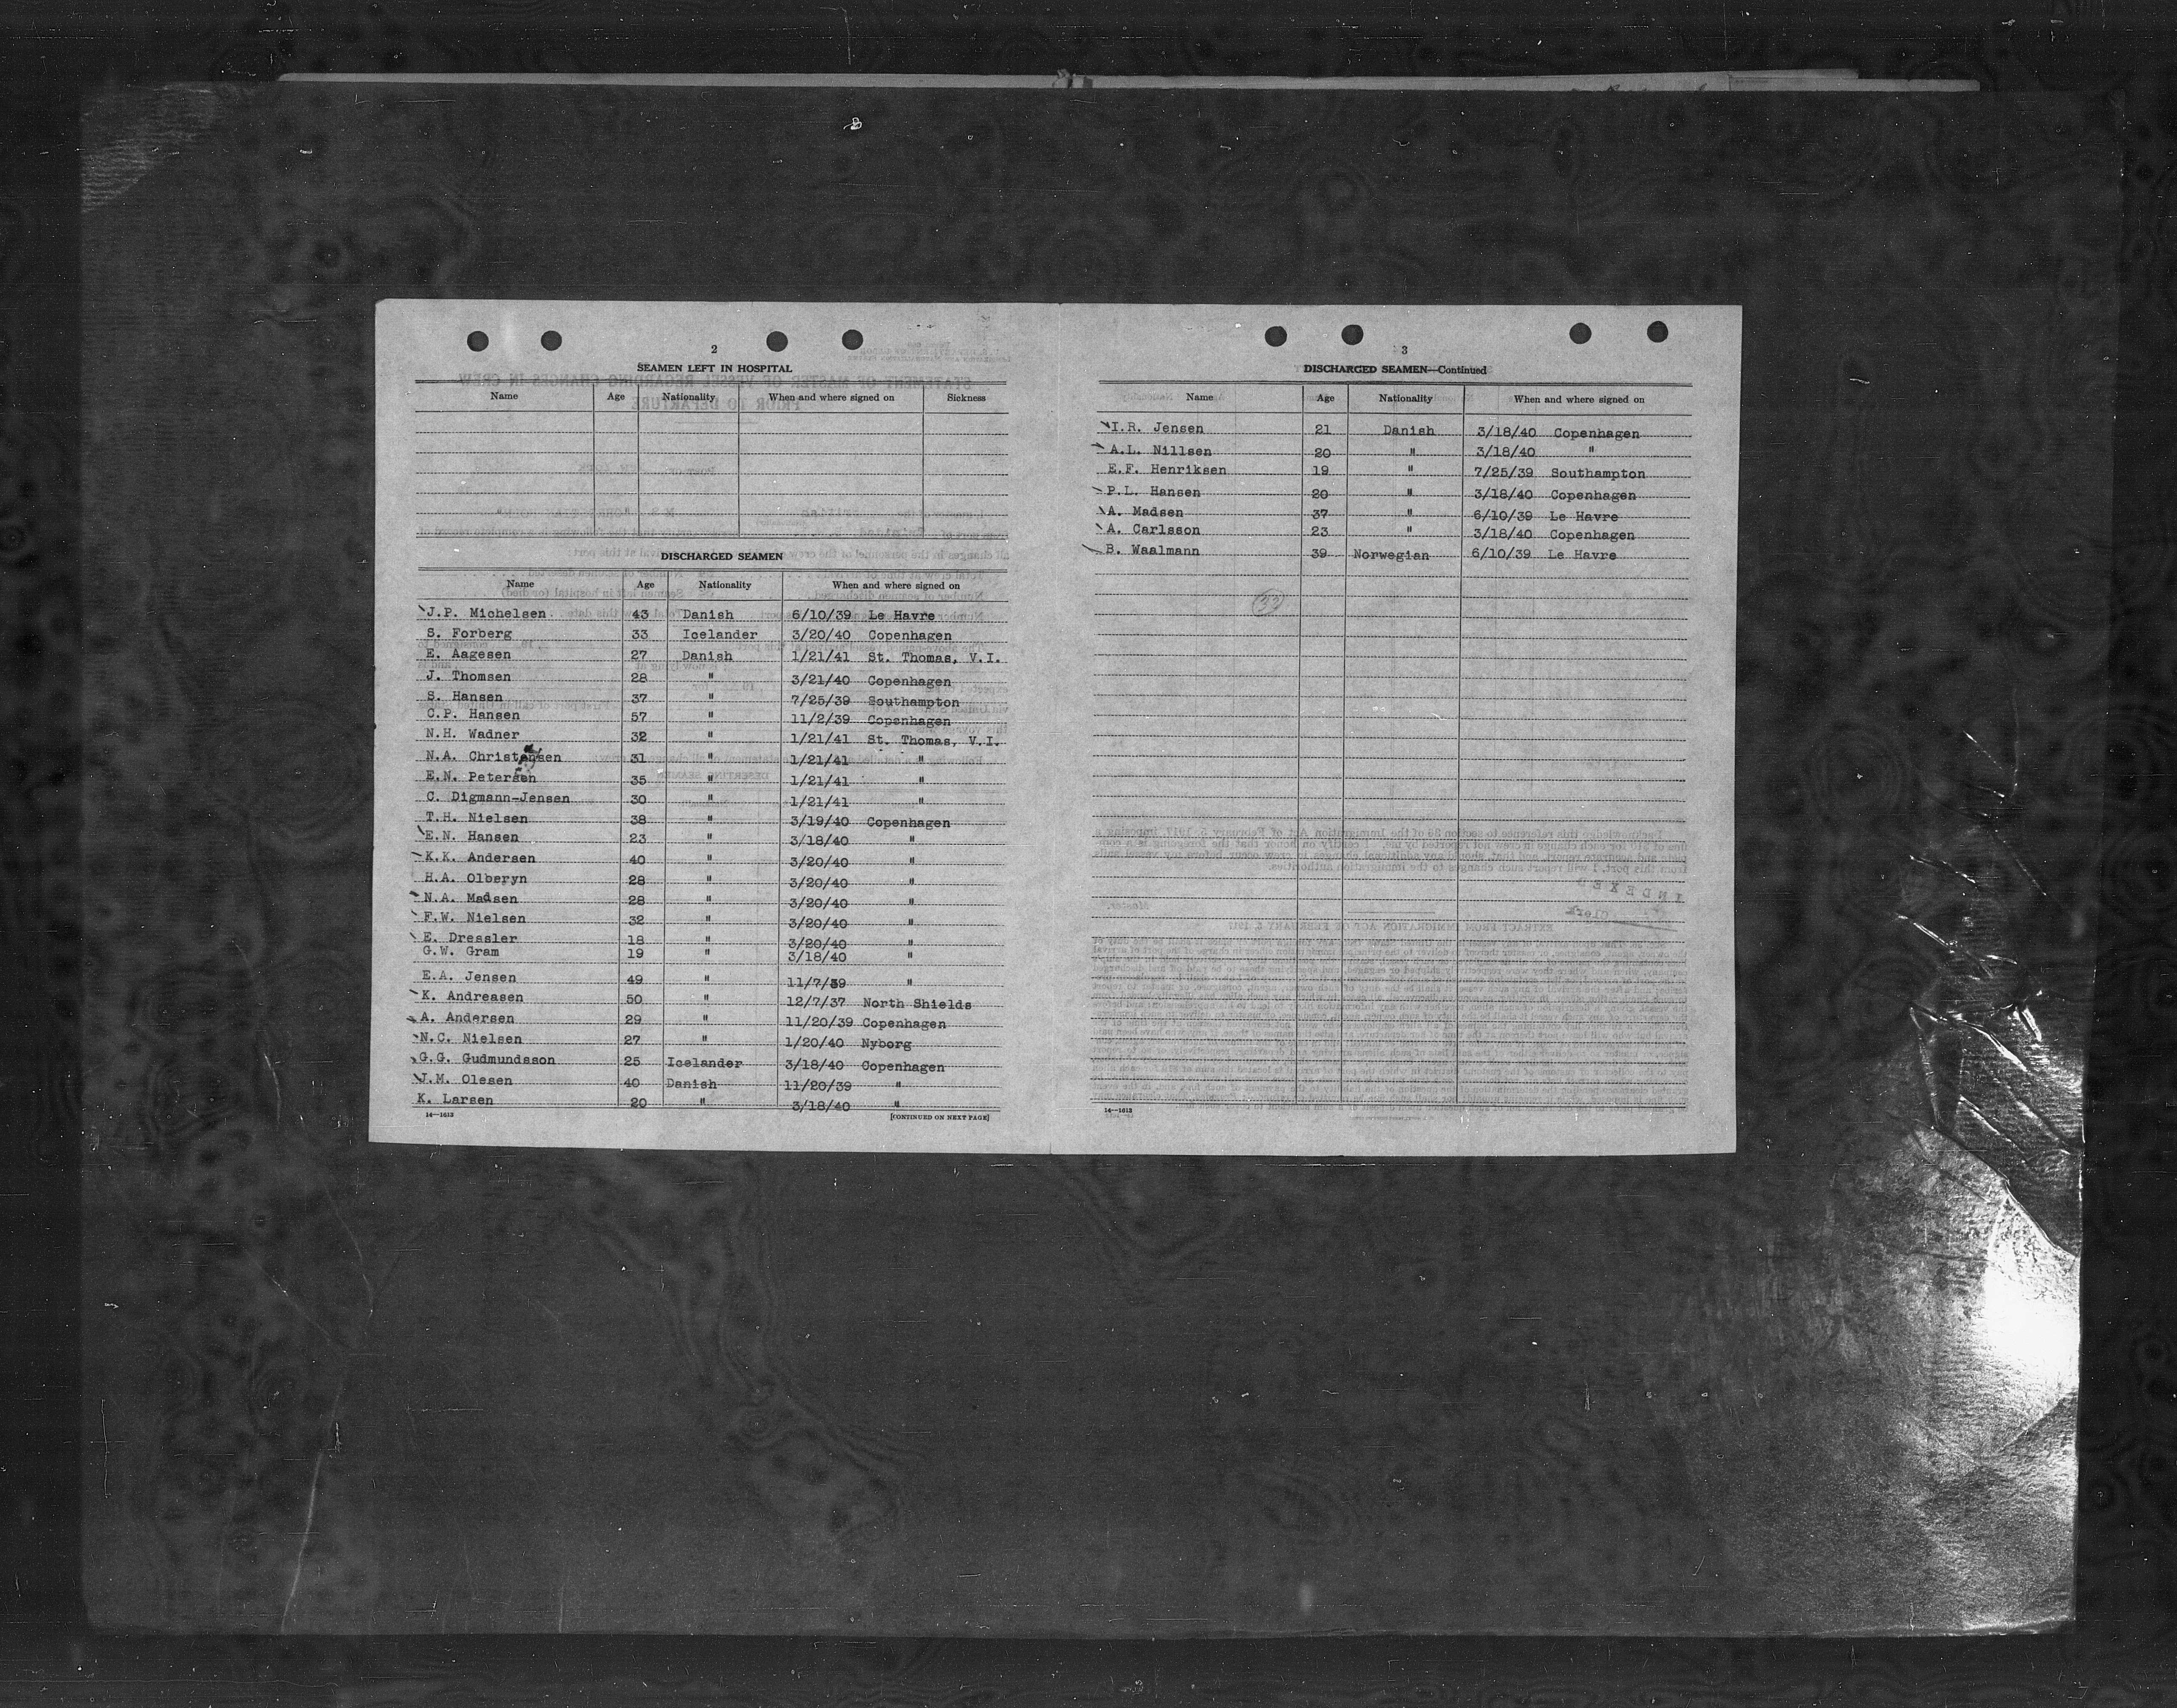 2
SEAMEN LEFT IN HOSPITAL
Name Age Nationality When and where signed on Sickness
DISCHARGED SEAMEN
Name Age Nationality When and where signed on
J.P. Michelsen 43 Danish 6/10/39 Le Havre
S. Forberg 33 Icelander 3/20/40 Copenhagen
E. Aagesen 27 Danish 1/21/41 St. Thomas, V.I.
J. Thomsen 28 " 3/21/40 Copenhagen
S. Hansen 37 " 7/25/39 Southampton
C.P. Hansen 57 " 11/2/39 Copenhagen
N.H. Wadner 32 " 1/21/41 St. Thomas, V.I.
N.A. Christensen 31 " 1/21/41 "
E.N. Petersen 35 " 1/21/41 "
C. Digmann-Jensen 30 " 1/21/41 "
T.H. Nielsen 38 " 3/19/40 Copenhagen
E.N. Hansen 23 " 3/18/40 "
K.K. Andersen 40 " 3/20/40 "
H.A. Olberyn 28 " 3/20/40 "
N.A. Madsen 28 " 3/20/40 "
F.W. Nielsen 32 " 3/20/40 "
E. Dressler 18 " 3/20/40 "
G.W. Gram 19 " 3/18/40 "
E.A. Jensen 49 " 11/7/39 "
K. Andreasen 50 " 12/7/37 North Shields
A. Andersen 29 " 11/20/39 Copenhagen
N.C. Nielsen 27 " 1/20/40 Nyborg
G.G. Gudmundsson 25 Icelander 3/18/40 Copenhagen
J.M. Olesen 40 Danish 11/20/39 "
K. Larsen 20 " 3/18/40 "
14—1613 [CONTINUED ON NEXT PAGE]
3
DISCHARGED SEAMEN—Continued
Name Age Nationality When and where signed on
I.R. Jensen 21 Danish 3/18/40 Copenhagen
A.L. Nillsen 20 " 3/18/40 "
E.F. Henriksen 19 " 7/25/39 Southampton
P.L. Hansen 20 " 3/18/40 Copenhagen
A. Madsen 37 " 6/10/39 Le Havre
A. Carlsson 23 " 3/18/40 Copenhagen
B. Waalmann 39 Norwegian 6/10/39 Le Havre
14—1613